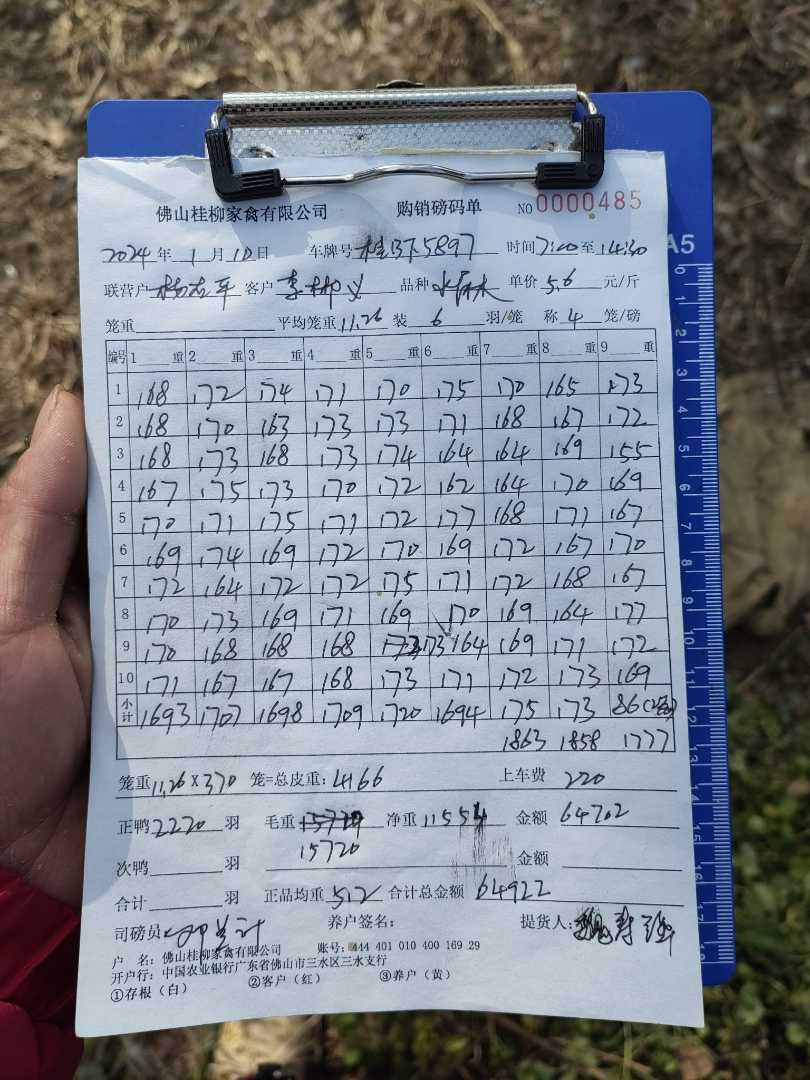 佛山桂柳家禽有限公司 购销磅码单 NO 0000485
2024 年 1 月 10 日 车牌号 桂 5897 时间 7:00 至 14:30
联营户 杨 平 客户 李彬义 品种 单价 5.6 元/斤
笼重 平均笼重 11.26 装 6 羽/笼 称 4 笼/磅
编号 1 重 2 重 3 重 4 重 5 重 6 重 7 重 8 重 9 重
1 168 172 174 171 170 175 170 165 173
2 168 170 163 173 173 171 168 167 172
3 168 173 168 173 174 164 164 169 155
4 167 175 173 170 172 162 164 170 169
5 170 171 175 171 172 177 168 171 167
6 169 174 169 172 170 169 172 167 170
7 172 164 172 172 175 171 172 168 167
8 170 173 169 171 169 170 169 164 177
9 170 168 168 168 173 164 169 171 172
10 171 167 167 168 173 171 172 173 169
小计 1693 1707 1698 1709 1720 1694 175 173 86
1863 1858 1777
笼重 11.26 X 370 笼=总皮重: 4166 上车费 220
正鸭 2220 羽 毛重 15720 净重 11554 金额 64702
15720
次鸭 羽 金额
合计 羽 正品均重 5.2 合计总金额 64922
司磅员 养户签名: 提货人:
户 名: 佛山桂柳家禽有限公司 账号: 444 401 010 400 169 29
开户行: 中国农业银行广东省佛山市三水区三水支行
①存根（白） ②客户（红） ③养户（黄）
A5
0 1 2 3 4 5 6 7 8 9 10 11 12 13 14 15 16 17 18